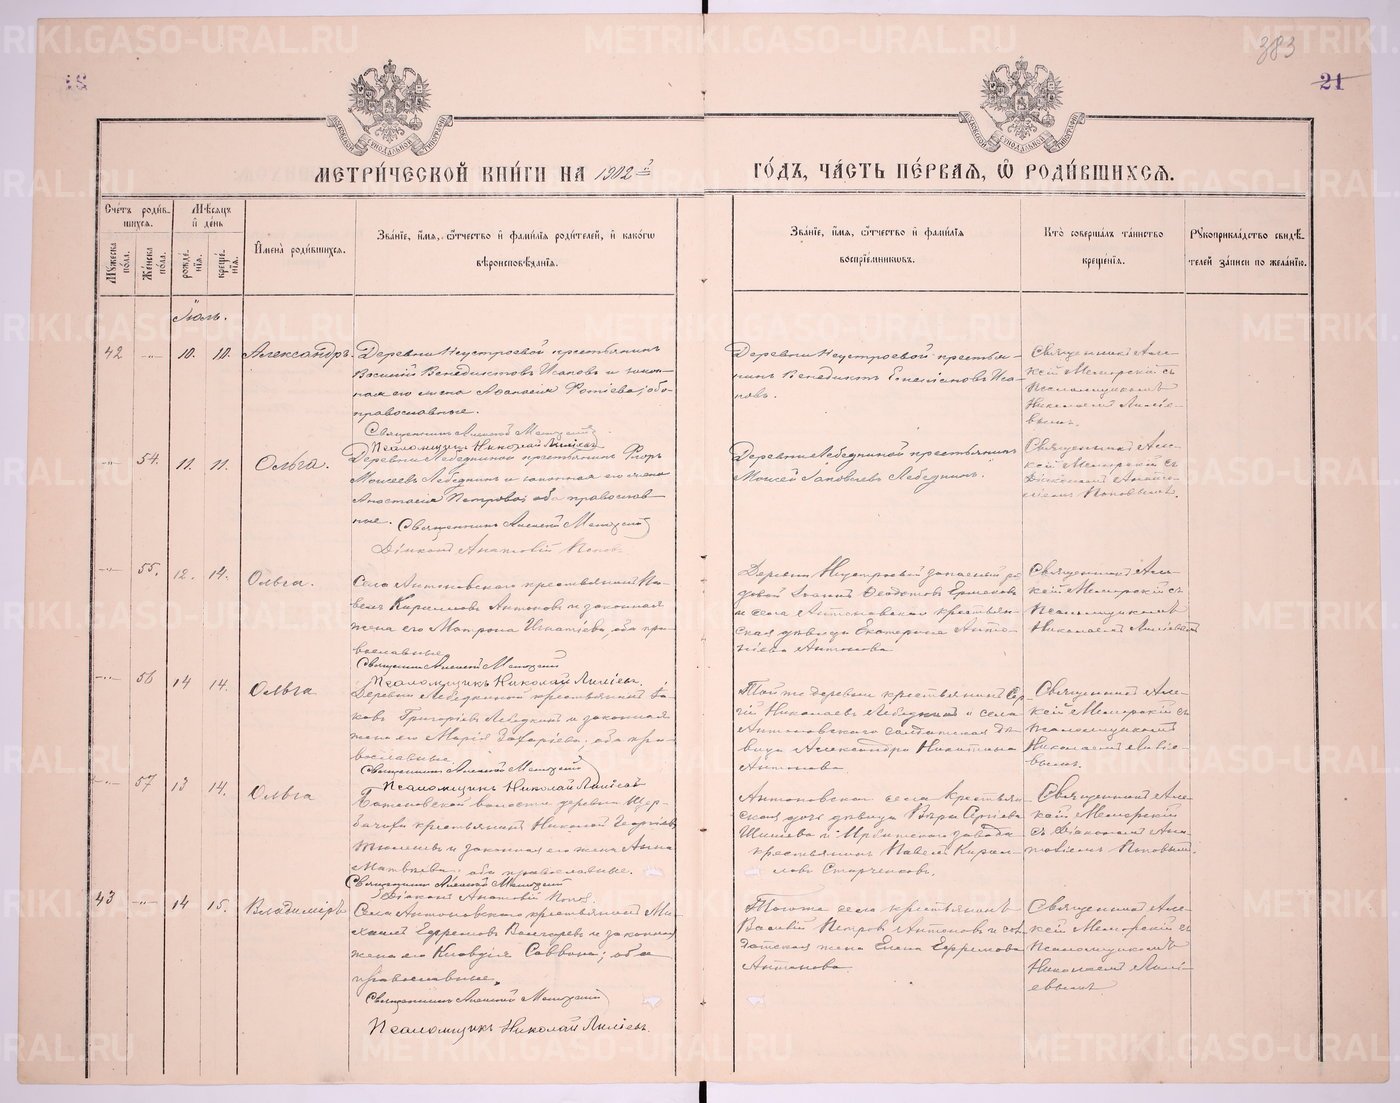 383
18
21
МЕТРИ́ЧЕСКОЙ КНИ́ГИ НА 1902 й
ГО́ДЪ, ЧА́СТЬ ПЕ́РВАЯ, Ѡ҆ РОДИ́ВШИХСЯ.
Сче́тъ роди́в-
шихся.
Му́жеска по́ла.
Же́нска по́ла.
Мѣ́сяцъ
и҆ де́нь
рожде́-
нїя.
креще́-
нїя.
И҆мена̀ роди́вшихся.
Зва́нїе, и҆́мя, ѻ҆́тчество и҆ фами́лїя роди́телей, и҆ како́гѡ
вѣроисповѣ́данїя.
Зва́нїе, и҆́мя, ѻ҆́тчество и҆ фами́лїя
воспрїе́мниковъ.
Кто̀ соверша́лъ та́инство
креще́нїя.
Рꙋкоприкла́дство свидѣ́-
телей за́писи по жела́нїю.
Іюль.
42 -"- 10. 10. Александръ.
Деревни Неустроевой крестьянинъ
Василій Венедиктовъ Исаковъ и закон-
ная его жена Афанасія Фотіева; оба
православные.
Священникъ Алексей Меморскій
Псаломщикъ Николай Лилѣевъ
Деревни Неустроевой крестья-
нинъ Венедиктъ Емеліановъ Иса-
ковъ.
Священникъ Але-
ксѣй Меморскій съ
Псаломщикомъ
Николаемъ Лиліе-
вымъ.
-"- 54. 11. 11. Ольга.
Деревни Лебедкиной крестьянинъ Флоръ
Моисеевъ Лебедкинъ и законная его жена
Анастасія Петрова; оба православ-
ные. Священникъ Алексей Меморскій
Діаконъ Анатолій Поповъ
Деревни Лебедкиной крестьянинъ
Моисей Іаковлевъ Лебедкинъ.
Священникъ Але-
ксѣй Меморскій съ
Діакономъ Анато-
ліемъ Поповымъ.
-"- 55. 12. 14. Ольга.
Села Антоновскаго крестьянинъ Па-
велъ Кирилловъ Антоновъ и законная
жена его Матрона Игнатіева, оба пра-
вославные.
Священникъ Алексей Меморскій
Псаломщикъ Николай Лилѣевъ.
Деревни Неустроевой запасный ря-
довой Іоаннъ Ѳеодотовъ
и села Антоновскаго крестьян-
ская дѣвица Екатерина Анто-
ніева Антонова
Священникъ Але-
ксѣй Меморскій съ
Псаломщикомъ
Николаемъ Лиліевымъ
-"- 56 14 14. Ольга
Деревни Лебедкиной крестьянинъ Іа-
ковъ Григоріевъ Лебедкинъ и законная
жена его Марія Захаріева; оба пра-
вославные.
Священникъ Алексей Меморскій
Псаломщикъ Николай Лилѣевъ
Той же деревни крестьянинъ Сер-
гій Николаевъ Лебедкинъ и села
Антоновскаго солдатская дѣ-
вица Александра Никитина
Антонова
Священникъ Але-
ксѣй Меморскій съ
Псаломщикомъ
Николаемъ Лиліе-
вымъ.
-"- 57 13 14. Ольга
волости деревни
крестьянинъ Николай Георгіевъ
и законная его жена Анна
Матвѣева; оба православные.
Священникъ Алексей Меморскій
Діаконъ Анатолій Поповъ
Антоновскаго села крестьян-
ская дочь дѣвица Вѣра Сергіева
и Ирбитскаго завода
крестьянинъ Павелъ Кирил-
ловъ Старченковъ.
Священникъ Але-
ксѣй Меморскій
съ Діакономъ Ана-
толіемъ Поповымъ.
43 -"- 14 15. Владиміръ
Села Антоновскаго крестьянинъ Ми-
хаилъ Ефремовъ и законная
жена его Клавдія Саввина; оба
православные.
Священникъ Алексей Меморскій
Псаломщикъ Николай Лилѣевъ.
Того же села крестьянинъ
Василій Петровъ Антоновъ и сол-
датская жена Елена Ефремова
Антонова.
Священникъ Але-
ксѣй Меморскій съ
Псаломщикомъ
Николаемъ Лилі-
евымъ
METRIKI.GASO-URAL.RU